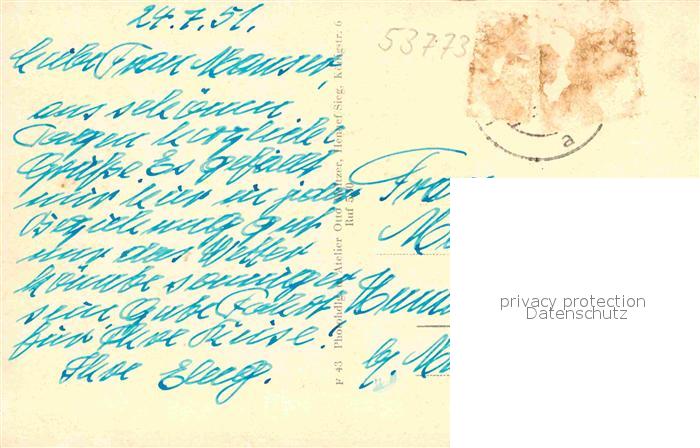 24.7.51.
53773
Liebe Frau Mauser,
aus schönen
Tagen herzliche
Grüße. Es gefällt
mir hier in jeder
Beziehung gut
nur das Wetter
könnte sonniger
sein. Gute Fahrt
für Ihre Reise.
Ihre
Frau
a
privacy protection
Datenschutz
F 43 Photohdlg. Atelier Otto Hennef Sieg, Königstr. 6
Ruf